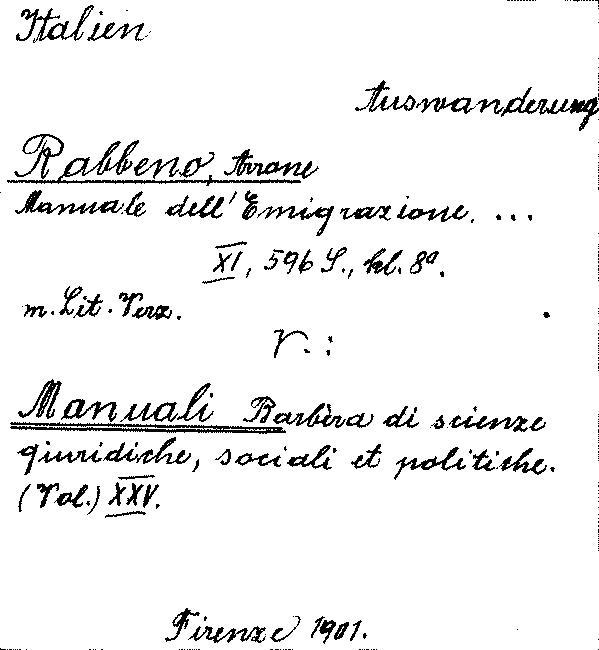 Italien
Auswanderung
Rabbeno, Arrone
Manuale dell'Emigrazione. ...
XI, 596 S., kl. 8°.
m. Lit. Verz.
V. :
Manuali Barbèra di scienze
giuridiche, sociali et politiche.
(Vol.) XXV.
Firenze 1901.